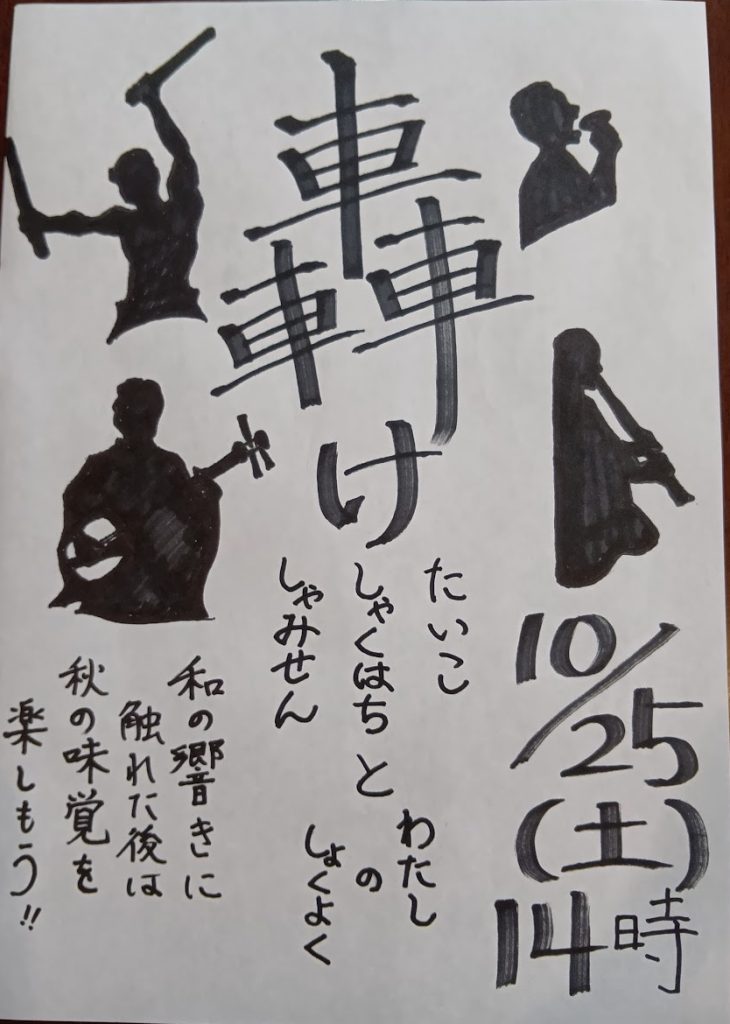 轟け
たいこ
しゃくはちと
しゃみせん
わたし
の
しょくよく
10/25
(土)
14時
和の響きに
触れた後は
秋の味覚を
楽しもう!!